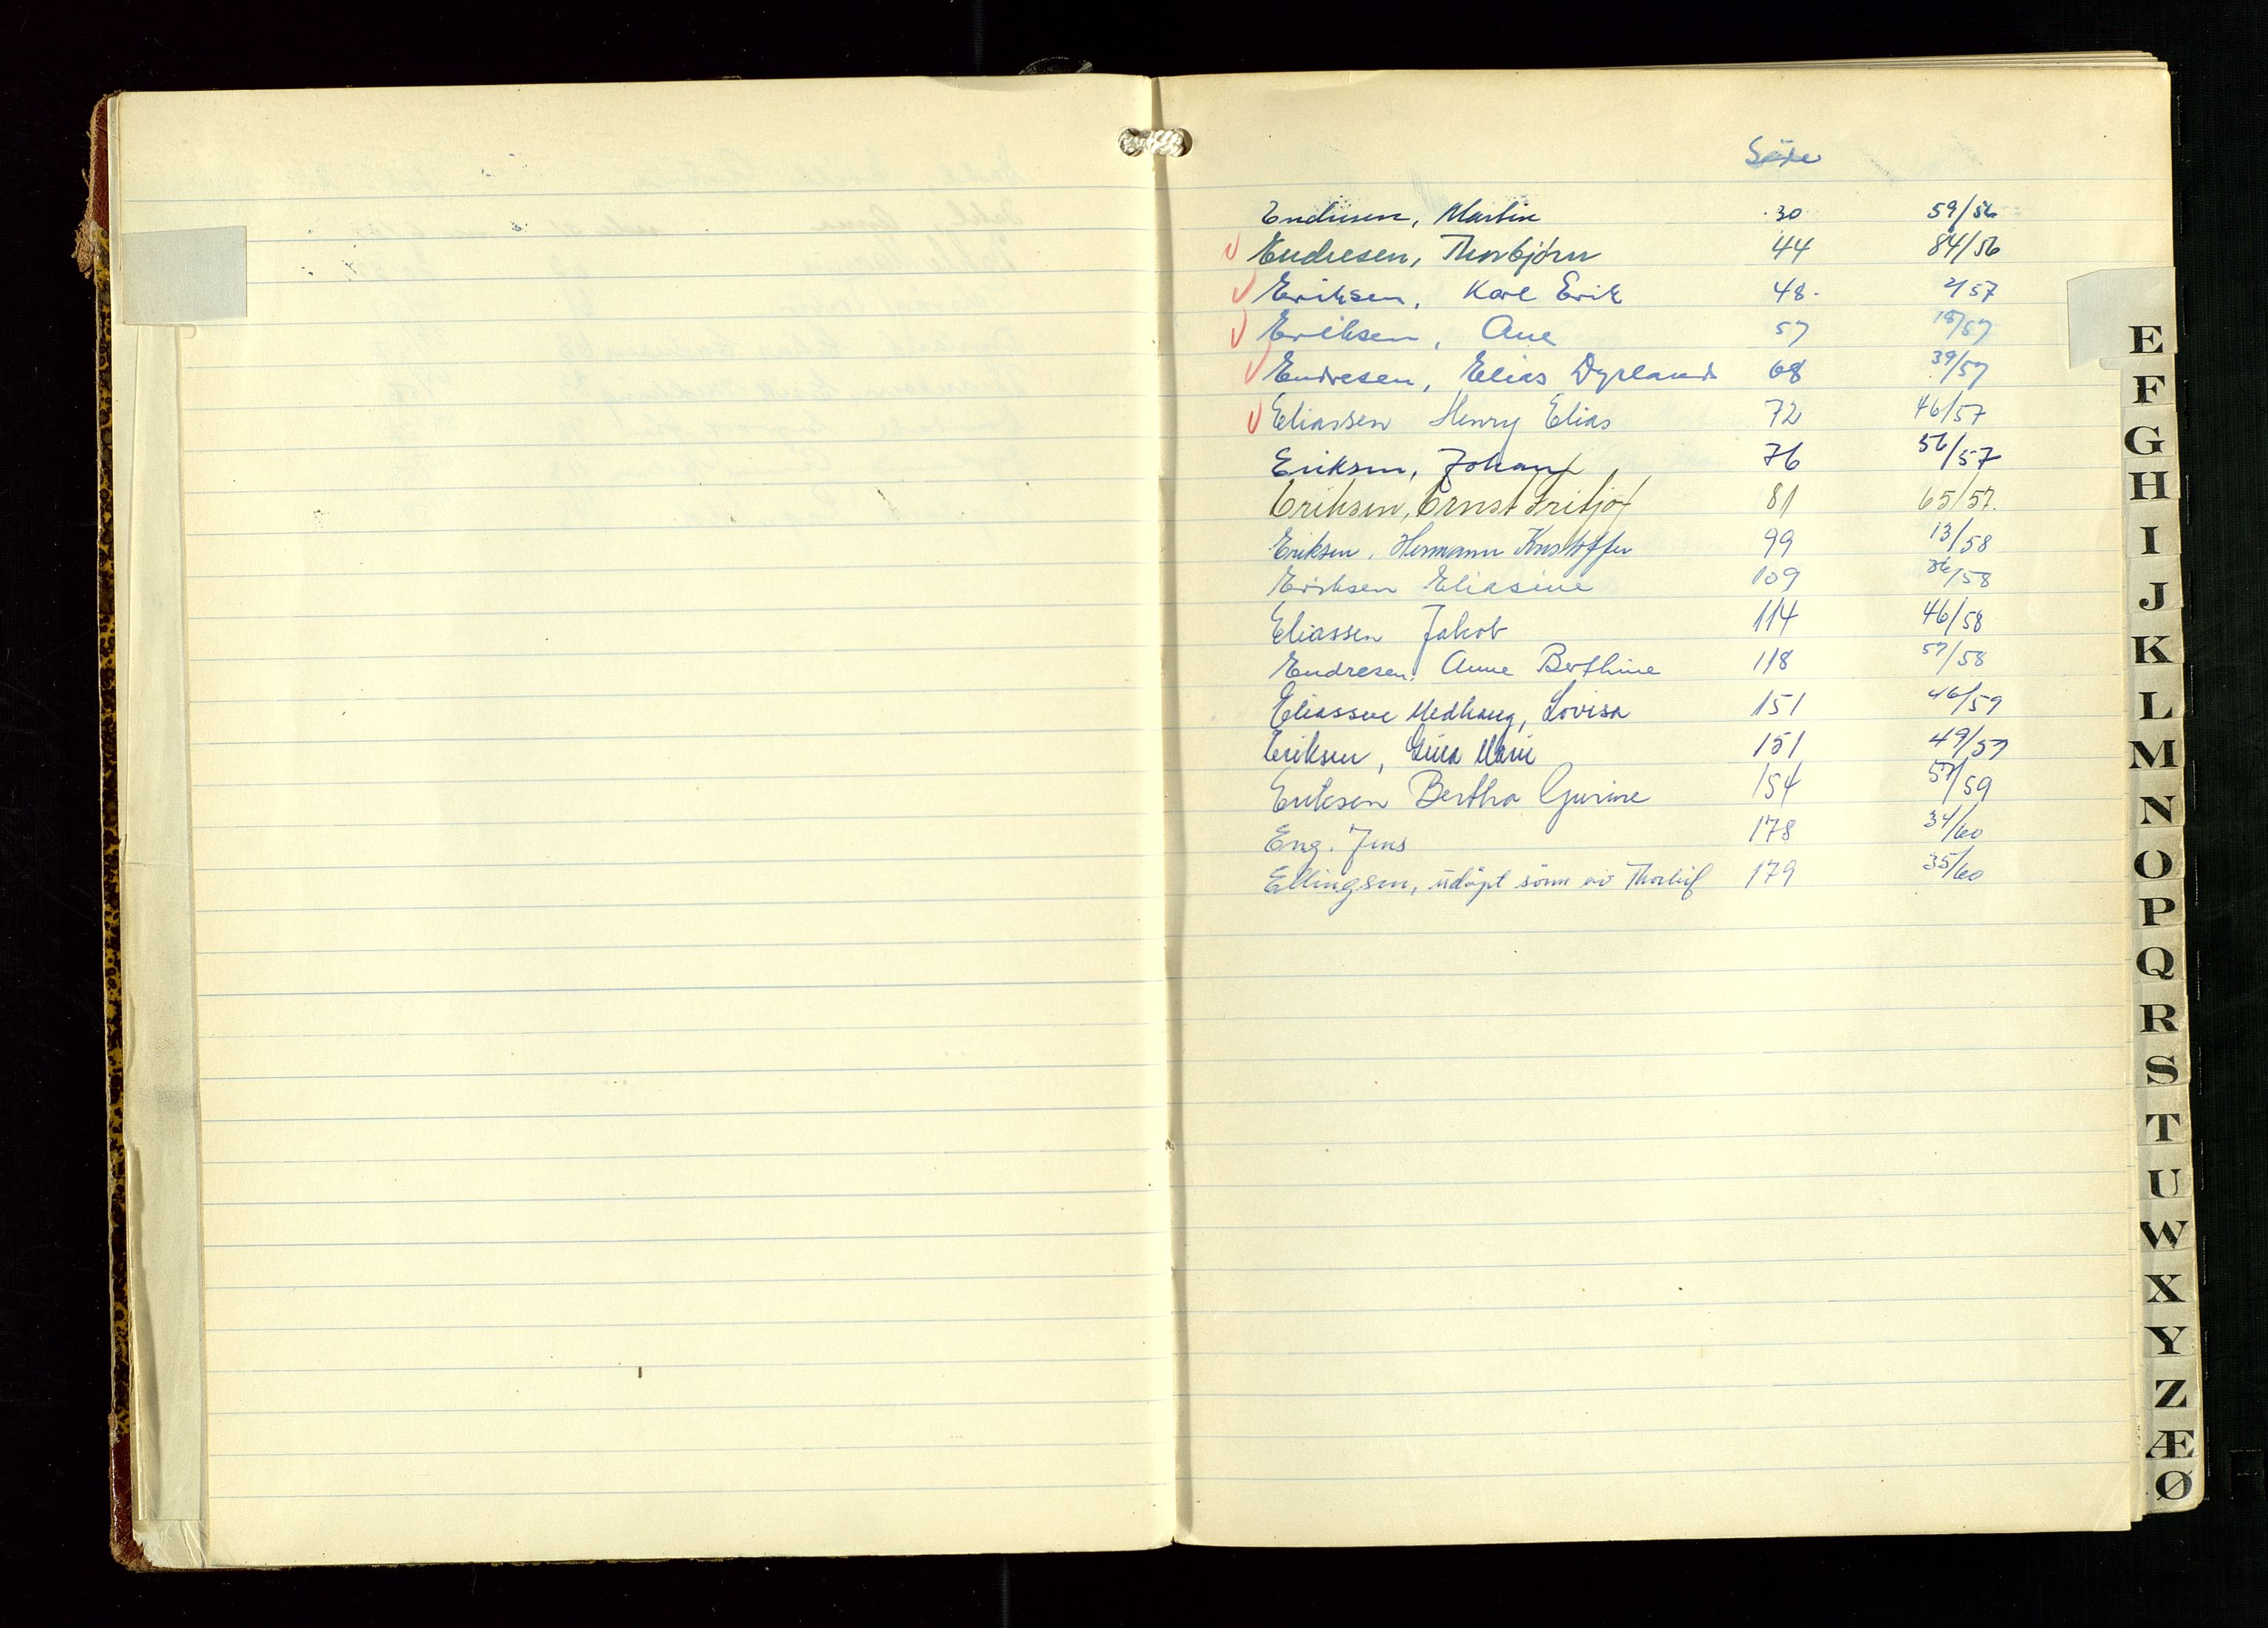 Side
Endresen, Martin 30 59/56
Endresen, Thorbjørn 44 84/56
Eriksen, Karl Erik 48 2/57
Eriksen, Ane 57 18/57
Endresen, Elias Dyrland 68 39/57
Eliassen Henry Elias 72 46/57
Eriksen, Johan 76 56/57
Eriksen, Ernst Fritjof 81 65/57.
Eriksen, Hermann Kristoffer 99 13/58
Eriksen Eliasine 109 36/58
Eliassen Jakob 114 46/58
Endresen, Anne Berthine 118 57/58
Eliassen Medhaug, Lovisa 151 46/59
Eriksen, Gina Marie 151 49/59
Eriksen Bertha Gurine 154 57/59
Eng. Jens 178 34/60
Ellingsen, udöpt sönn av Thorleif 179 35/60
E
F
G
H
I
J
K
L
M
N
O
P
Q
R
S
T
U
W
X
Y
Z
Æ
Ø